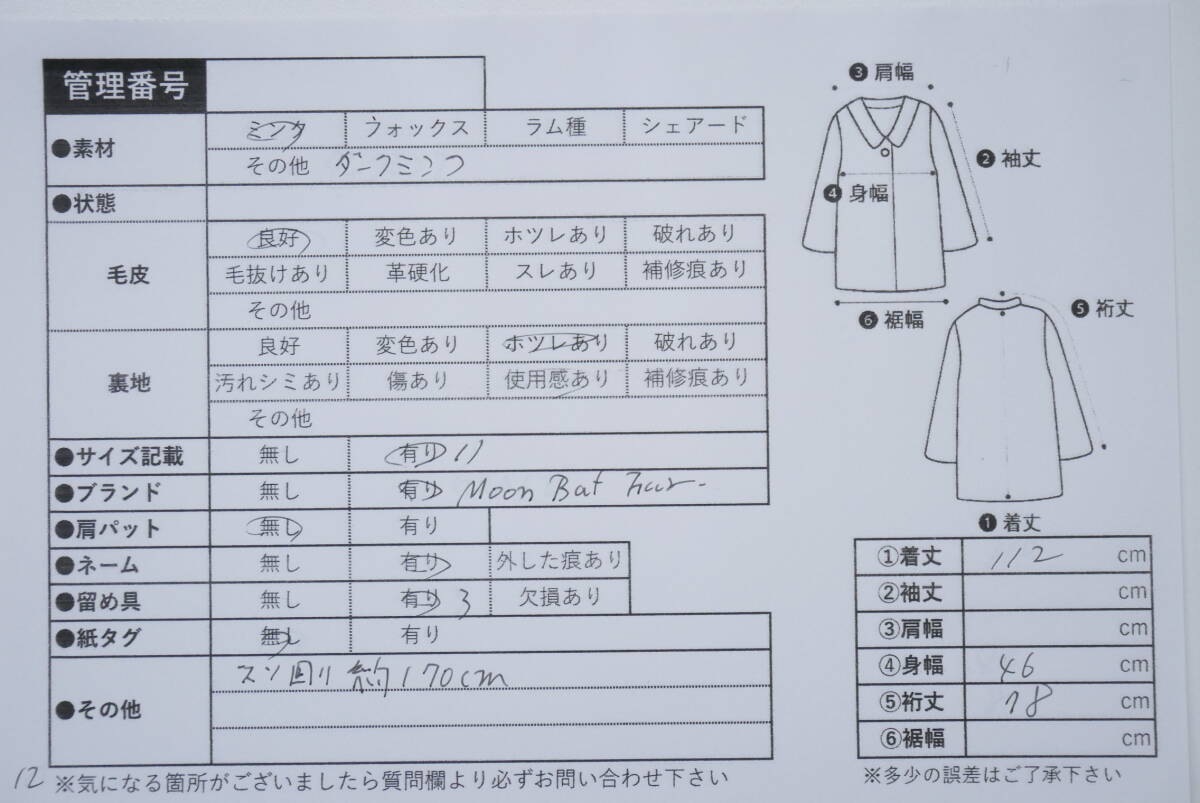 管理番号
●素材 ミンク フォックス ラム種 シェアード
その他 ダークミンク
●状態
毛皮 良好 変色あり ホツレあり 破れあり
毛抜けあり 革硬化 スレあり 補修痕あり
その他
裏地 良好 変色あり ホツレあり 破れあり
汚れシミあり 傷あり 使用感あり 補修痕あり
その他
●サイズ記載 無し 有り 11
●ブランド 無し 有り Moon Bat Fur
●肩パット 無し 有り
●ネーム 無し 有り 外した痕あり
●留め具 無し 有り 3 欠損あり
●紙タグ 無し 有り
●その他 スソ回り 約170cm
12 ※気になる箇所がございましたら質問欄より必ずお問い合わせ下さい
❸ 肩幅
❷ 袖丈
❹ 身幅
❻ 裾幅
❺ 裄丈
❶ 着丈
①着丈 112 cm
②袖丈 cm
③肩幅 cm
④身幅 46 cm
⑤裄丈 78 cm
⑥裾幅 cm
※多少の誤差はご了承下さい